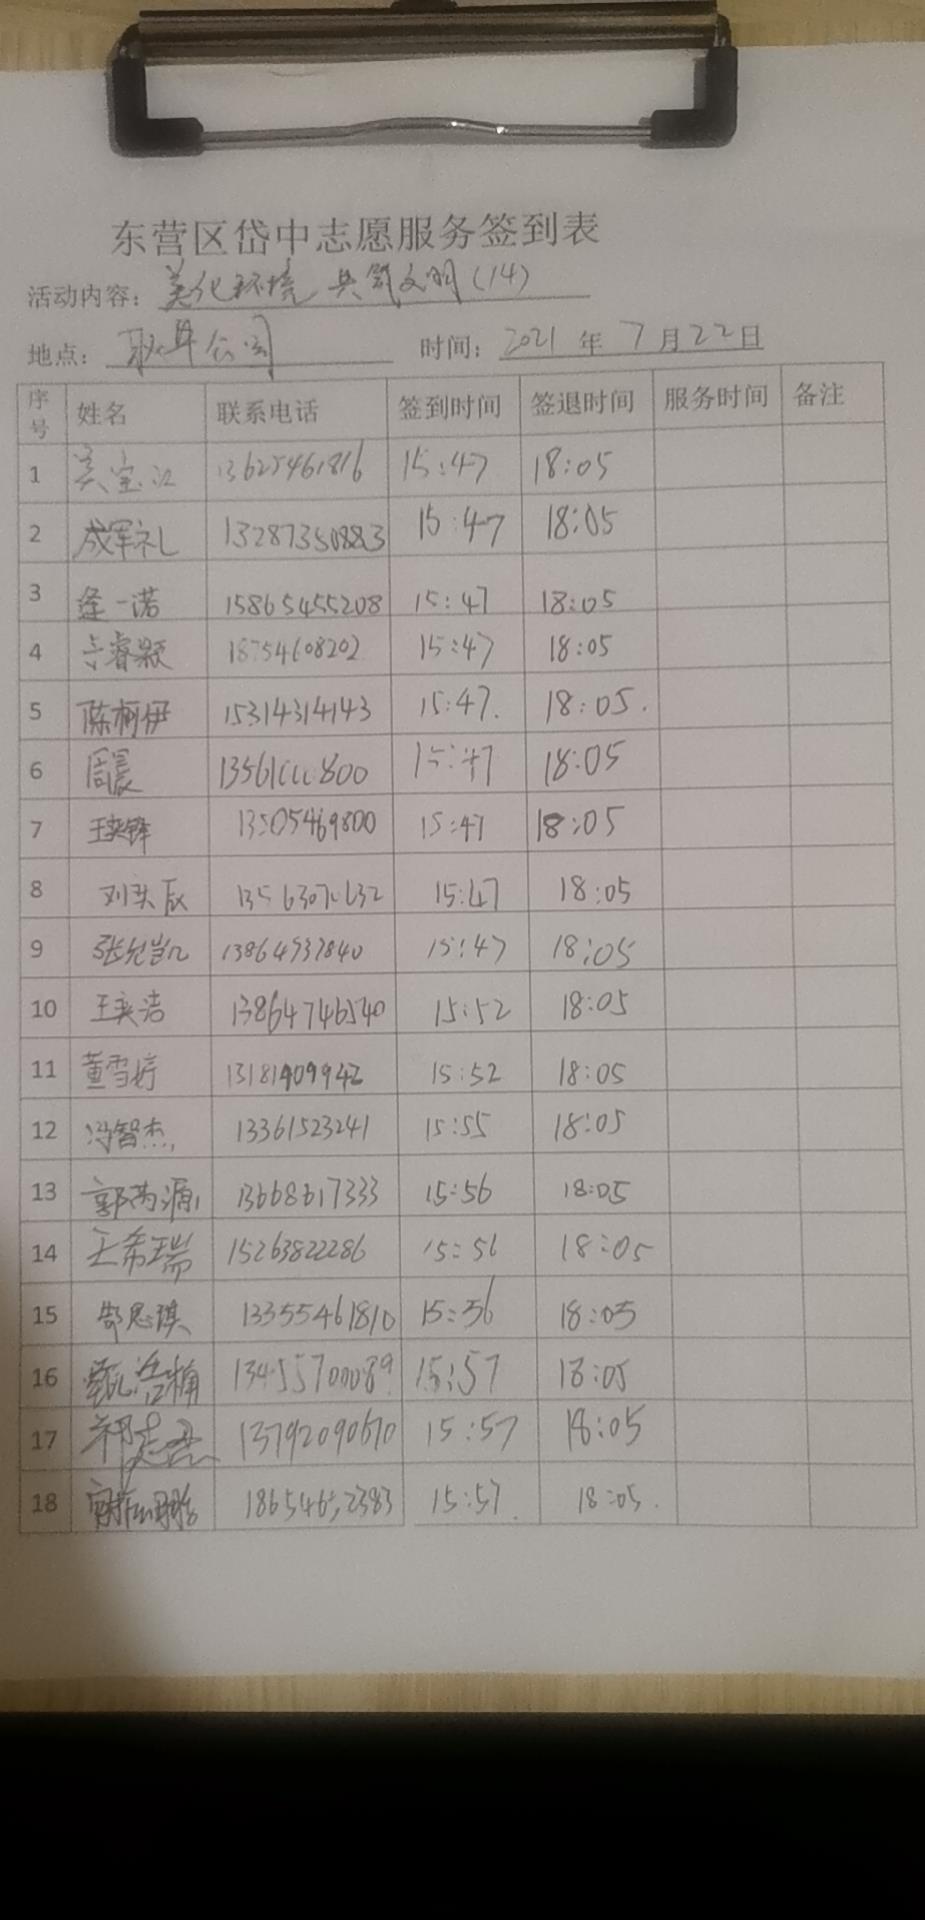 东营区岱中志愿服务签到表
活动内容: 美化环境 共筑文明(14)
地点: 公司 时间: 2021 年 7 月 22 日
序号 姓名 联系电话 签到时间 签退时间 服务时间 备注
1 吴宝江 13625461816 15:47 18:05
2 成军礼 13287350883 15:47 18:05
3 逄一诺 15865455208 15:47 18:05
4 睿颖 18754608202 15:47 18:05
5 陈柯伊 15314314143 15:47. 18:05.
6 周晨 15:47 18:05
7 王奕锋 13505469800 15:47 18:05
8 刘奕辰 15:47 18:05
9 张允凯 13864937840 15:47 18:05
10 王奕洁 13864746540 15:52 18:05
11 董雪婷 13181409942 15:52 18:05
12 冯智杰 13361523241 15:55 18:05
13 郭芮源 13668617333 15:56 18:05
14 王希瑞 15263822286 15:56 18:05
15 思琪 13355461810 15:56 18:05
16 13455700089 15:57 18:05
17 13792090670 15:57 18:05
18 15:57. 18:05.